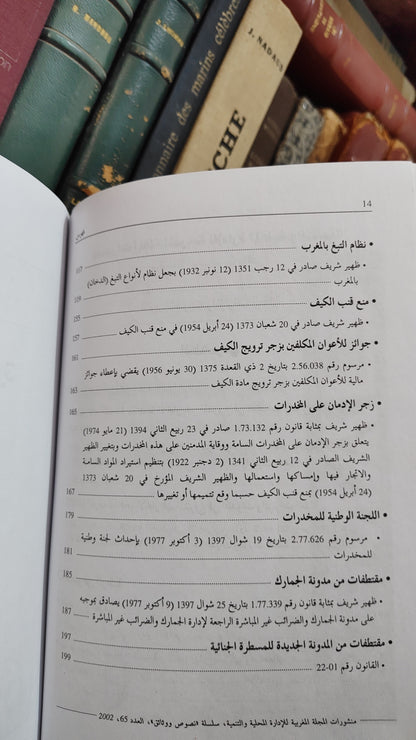 R. MANDROU
J. LUCI
nnaire des marins célèbres
J. NADAUD
CHE
14
• نظام التبغ بالمغرب 107
• ظهير شريف صادر في 12 رجب 1351 (12 نونبر 1932) بجعل نظام لأنواع التبغ (الدخان)
بالمغرب 109
• منع قنب الكيف 155
• ظهير شريف صادر في 20 شعبان 1373 (24 أبريل 1954) في منع قنب الكيف 157
• جوائز للأعوان المكلفين بزجر ترويج الكيف 161
• مرسوم رقم 2.56.038 بتاريخ 2 ذي القعدة 1375 (30 يونيو 1956) يقضي بإعطاء جوائز
مالية للأعوان المكلفين بزجر ترويج مادة الكيف
• زجر الإدمان على المخدرات 165
• ظهير شريف بمثابة قانون رقم 1.73.132 صادر في 23 ربيع الثاني 1394 (21 مايو 1974)
يتعلق بزجر الإدمان على المخدرات السامة ووقاية المدمنين على هذه المخدرات وبتغيير الظهير
الشريف الصادر في 12 ربيع الثاني 1341 (2 دجنبر 1922) بتنظيم استيراد المواد السامة
والاتجار فيها وإمساكها واستعمالها والظهير الشريف المؤرخ في 20 شعبان 1373
(24 أبريل 1954) بمنع قنب الكيف حسبما وقع تتميمها أو تغييرها 167
• اللجنة الوطنية للمخدرات 179
• مرسوم رقم 2.77.626 بتاريخ 19 شوال 1397 (3 أكتوبر 1977) بإحداث لجنة وطنية
للمخدرات 181
• مقتطفات من مدونة الجمارك 185
• ظهير شريف بمثابة قانون رقم 1.77.339 بتاريخ 25 شوال 1397 (9 أكتوبر 1977) يصادق بموجبه
على مدونة الجمارك والضرائب غير المباشرة الراجعة لإدارة الجمارك والضرائب غير المباشرة 187
• مقتطفات من المدونة الجديدة للمسطرة الجنائية 197
• القانون رقم 01-22 199
منشورات المجلة المغربية للإدارة المحلية والتنمية، سلسلة «نصوص ووثائق»، العدد 65، 2002